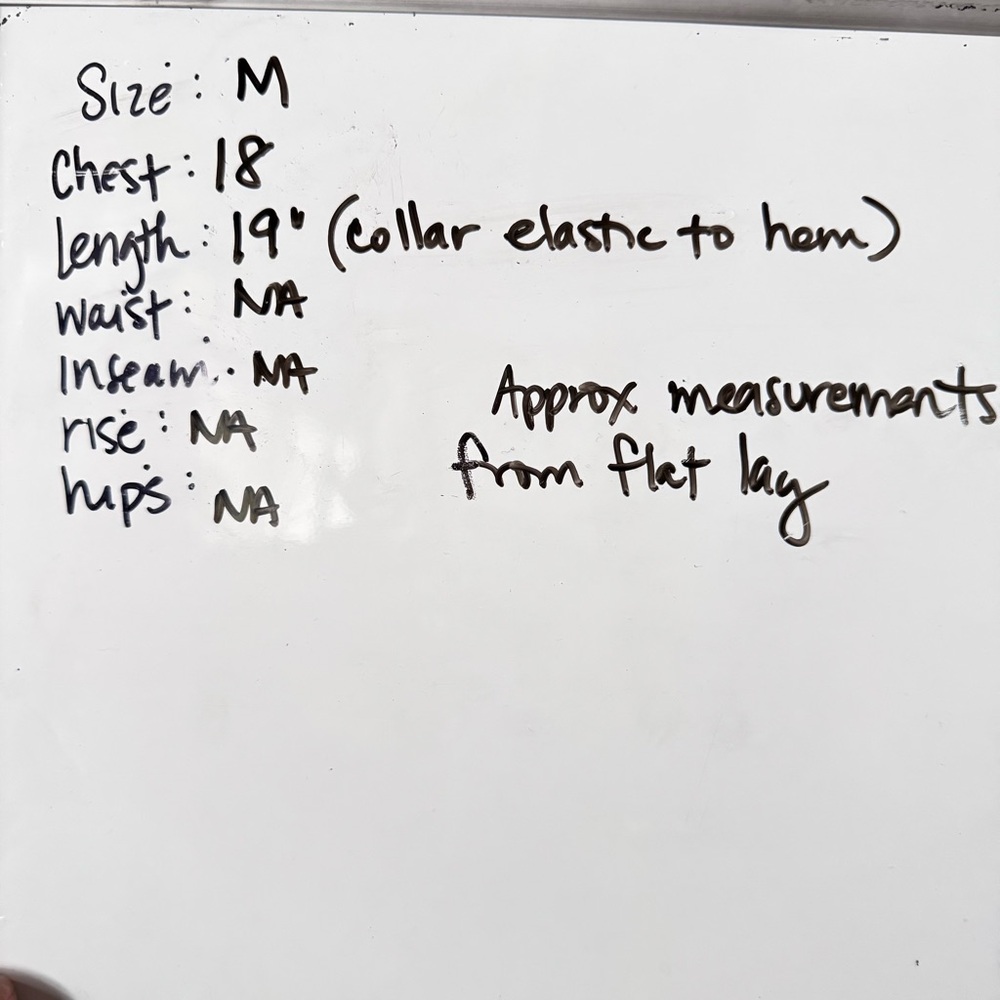 Size: M
Chest: 18
Length: 19" (collar elastic to hem)
waist: NA
Inseam: NA
rise: NA
hips: NA
Approx measurements
from flat lay